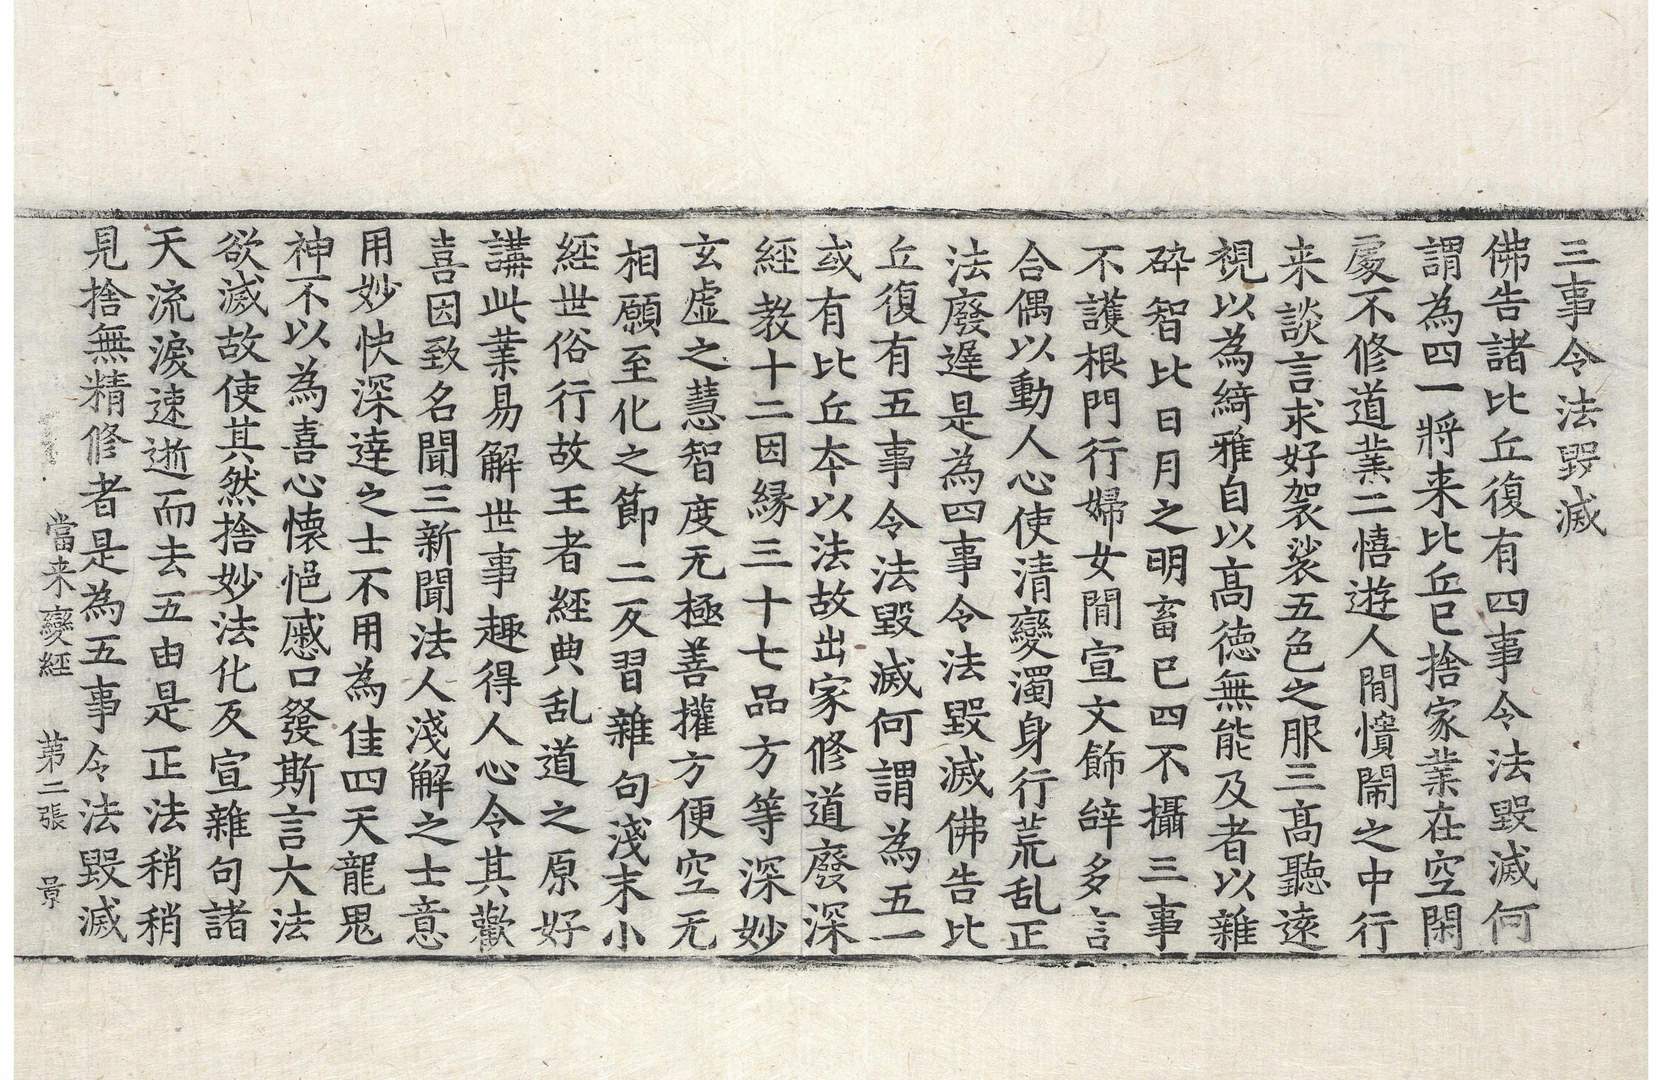 三事令法毀滅
佛告諸比丘復有四事令法毀滅何
謂為四一將来比丘巳捨家業在空閑
處不修道業二憘遊人間憒閙之中行
来談言求好袈裟五色之服三髙聽遠
視以為綺雅自以髙德無能及者以雜
碎智比日月之明畜已四不攝三事
不護根門行婦女間宣文飾辝多言
合偶以動人心使清變濁身行荒乱正
法廢遅是為四事令法毀滅佛告比
丘復有五事令法毀滅何謂為五一
或有比丘夲以法故出家修道廢深
經教十二因縁三十七品方等深妙
玄虛之慧智度无極善權方便空无
相願至化之節二反習雜句淺末小
經世俗行故王者經典乱道之原好
講此業易解世事趣得人心令其歡
喜因致名聞三新聞法人淺解之士意
用妙快深達之士不用為佳四天龍鬼
神不以為喜心懐悒慼口發斯言大法
欲滅故使其然捨妙法化反宣雜句諸
天流淚速逝而去五由是正法稍稍
見捨無精修者是為五事令法毀滅
當来變經 苐二張 景